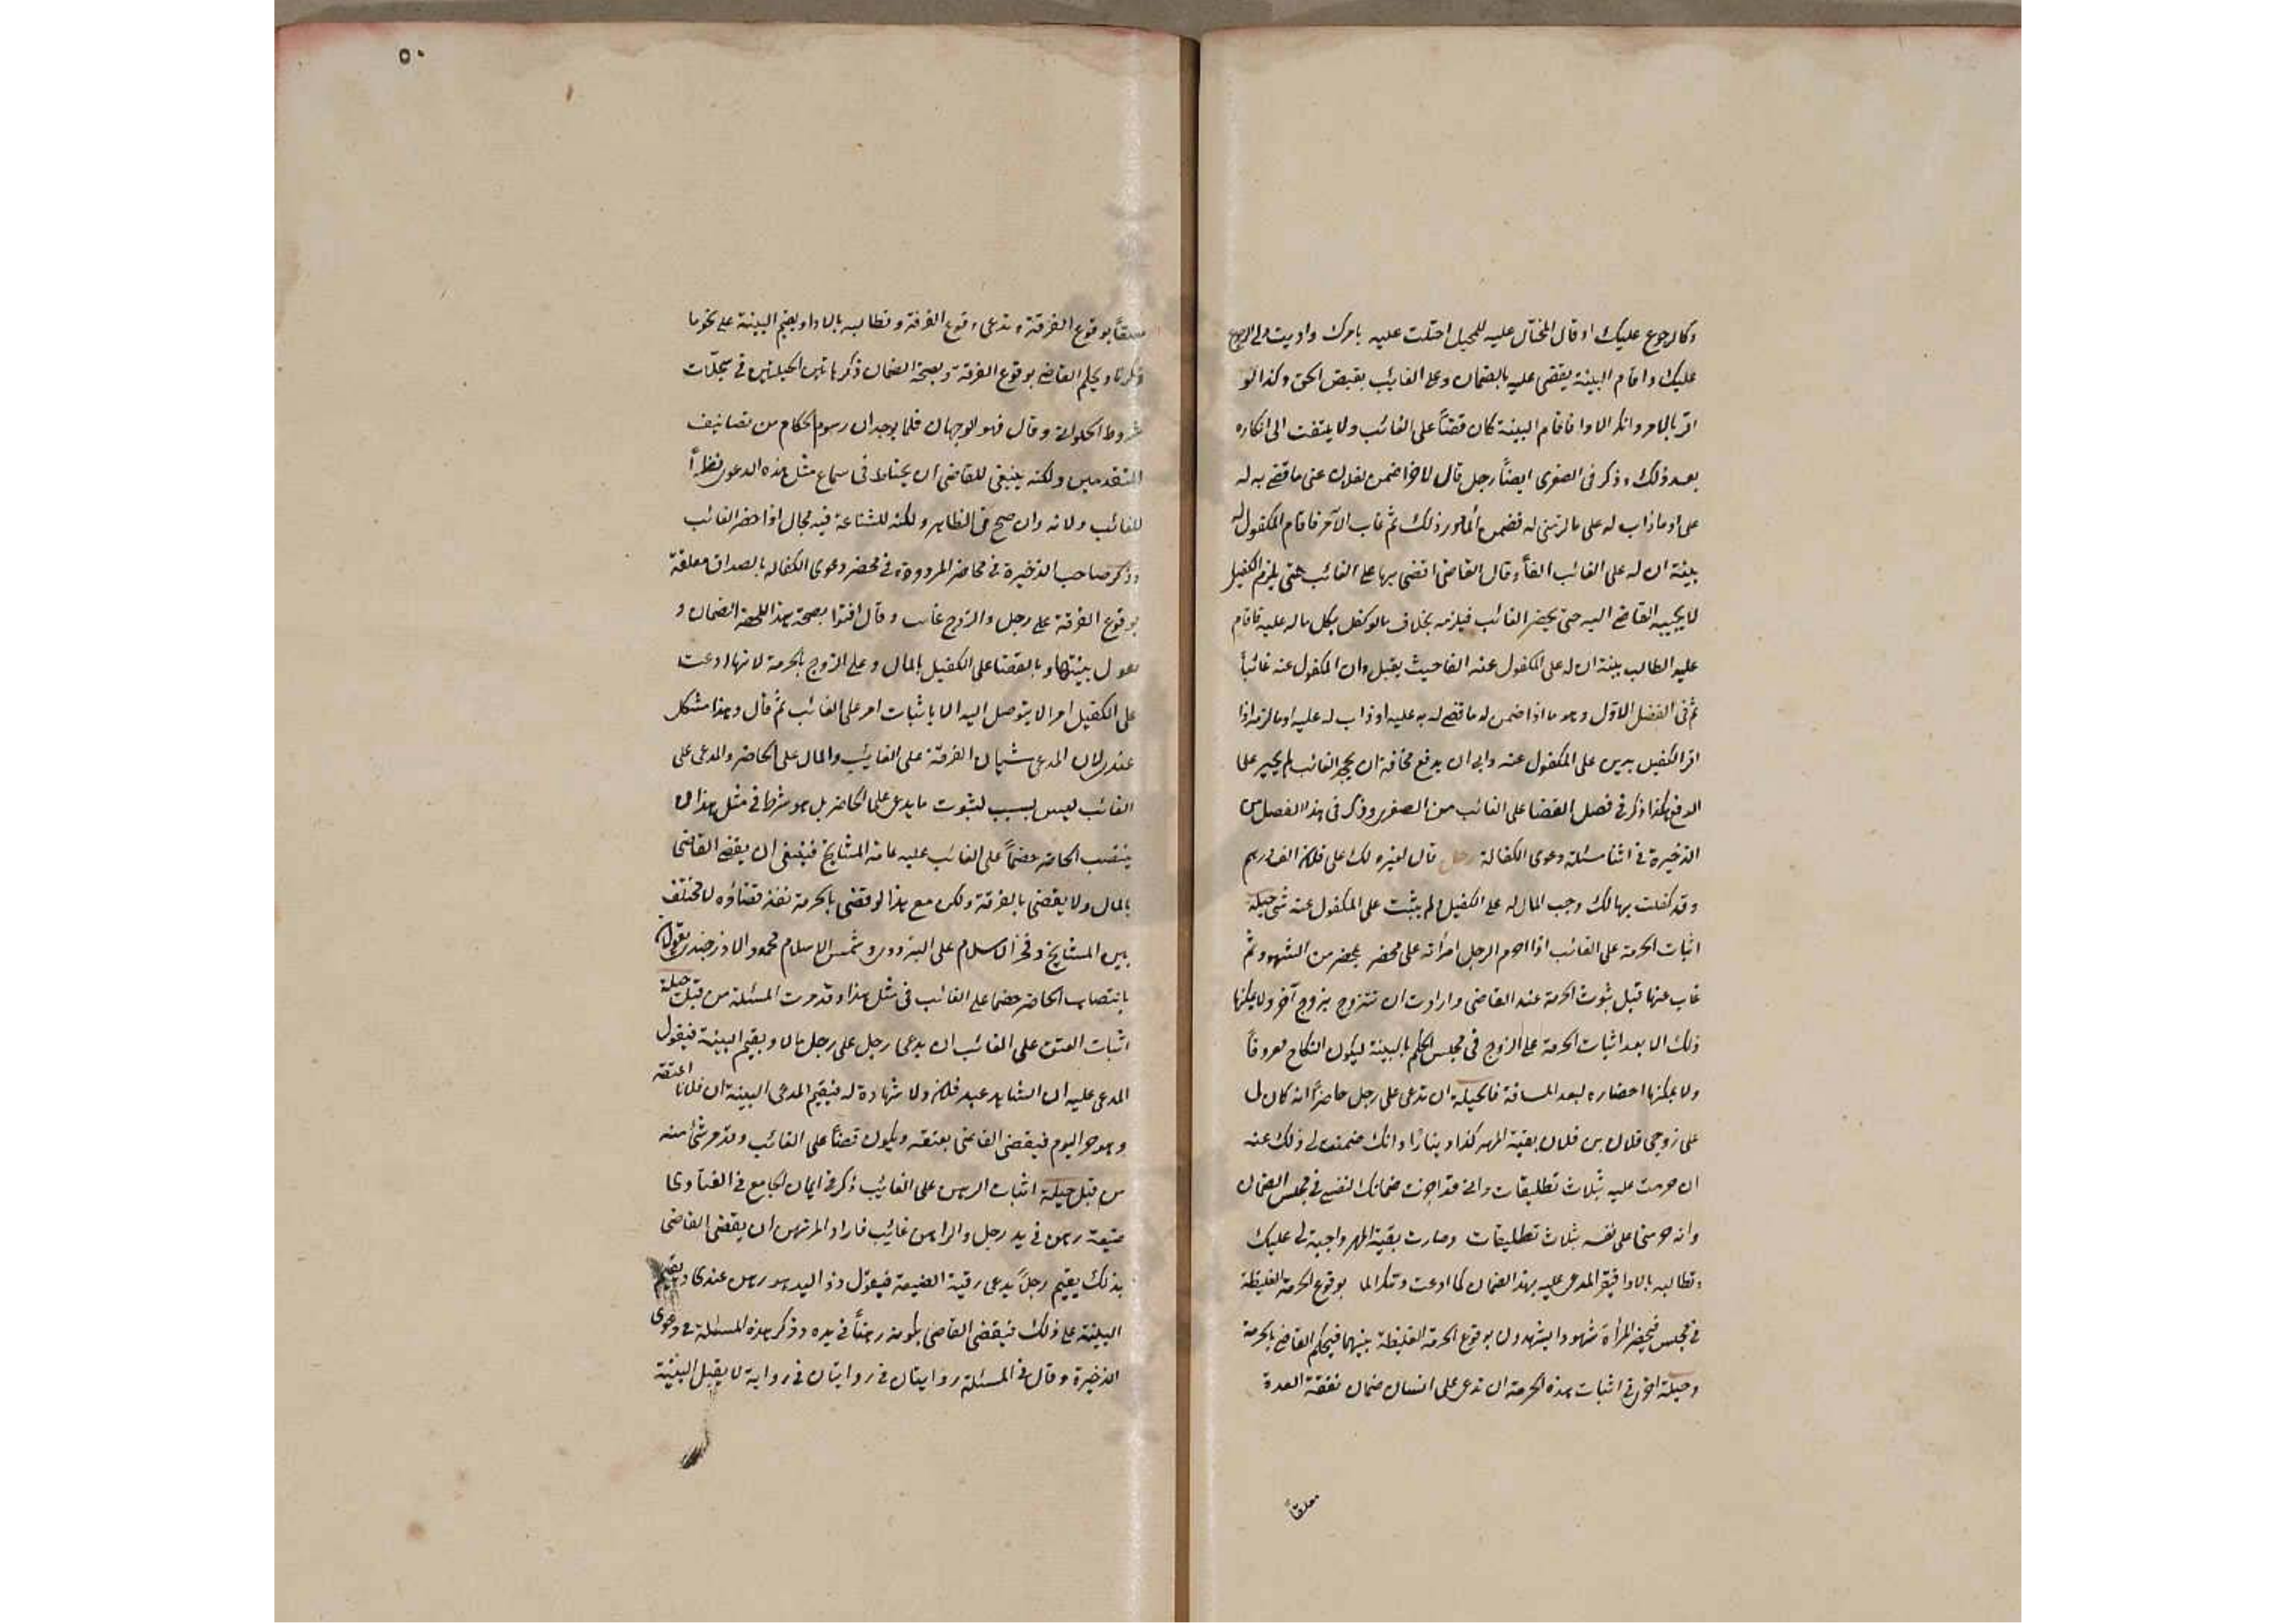 وكا لرجوع عليك او قال المحتال عليه للمحيل احتلت عليه بامرك واديت ولى الرجوع
عليك واقام البينة يقضى عليه بالضمان وعلى الغائب بقبض الحق وكذا لو
اقر بالامر وانكر الادا فاقام البينة كان قضاً على الغائب ولا يلتفت الى انكاره
بعد ذلك وذكر فى الصغرى ايضاً رجل قال لاخر اضمن لفلان عنى ما قضى به له
على او ما ذاب له على ما لزمنى له فضمن المامور ذلك ثم غاب الآمر فاقام المكفول له
بينة ان له على الغائب الفاً وقال القاضى اقضى بها على الغائب حتى يلزم الكفيل
لا يجيبه القاضى اليه حتى يحضر الغائب فيلزمه بخلاف ما لو كفل بكل ما له عليه فاقام
عليه الطالب بينة ان له على المكفول عنه الفا حيث يقبل وان المكفول عنه غائباً
ثم فى الفصل الاول وهو ما اذا ضمن له ما قضى له به عليه او ذاب له عليه او ما لزمه اذا
اقر الكفيل بدين على المكفول عنه وابى ان يدفع مخافة ان يجحد الغائب لم يجبر على
الدفع هكذا ذكر فى فصل القضا على الغائب من الصغرى وذكر فى هذا الفصل من
الذخيرة فى اثنا مسئلة دعوى الكفالة رجل قال لغيره لك على فلان الف درهم
وقد كفلت بها لك وجب المال له على الكفيل ولم يثبت على المكفول عنه شى حيلة
اثبات الحرمة على الغائب اذا احرم الرجل امرأته على محضر بمحضر من الشهود ثم
غاب عنها قبل ثبوت الحرمة عند القاضى وارادت ان تتزوج بزوج آخر ولا يمكنها
ذلك الا بعد اثبات الحرمة على الزوج فى مجلس الحكم بالبينة ليكون النكاح معروفاً
ولا يمكنها احضاره لبعد المسافة فالحيلة ان تدعى على رجل حاضراً انه كان لى
على زوجى فلان بن فلان بقية المهر كذا ديناراً وانك ضمنت لى ذلك عنه
ان حرمت عليه بثلاث تطليقات وانى قد اجزت ضمانك لنفسى فى مجلس الضمان
وانه حرمنى على نفسه بثلاث تطليقات وصارت بقية المهر واجبة لى عليك
وتطالبه بالادا فيقر المدعى عليه بهذا الضمان كما ادعت وتنكر الما بوقوع الحرمة الغليظة
فى مجلس فيحضر المرأة شهودا يشهدون بوقوع الحرمة الغليظة بينهما فيحكم القاضى بالحرمة
وحيلة اخرى فى اثبات هذه الحرمة ان تدعى على انسان ضمان نفقة العدة
معلقاً
٥٠
معلقاً بوقوع الفرقة وتدعى وقوع الفرقة وتطالبه بالادا ويقيم البينة على نحو ما
ذكرنا ويحكم القاضى بوقوع الفرقة وبصحة الضمان ذكر هاتين الحيلتين فى سجلات
شروط الحلوانى وقال فهو لوجهان قلما يوجدان رسوم الحكام من تصانيف
المتقدمين ولكنه ينبغى للقاضى ان يحتاط فى سماع مثل هذه الدعوى نظراً
للغائب ولانه وان صح فى الظاهر ولكنه للشناعة فيه مجال اذا حضر الغائب
وذكر صاحب الذخيرة فى محاضر المردودة فى محضر دعوى الكفالة بالصداق معلقة
بوقوع الفرقة على رجل والزوج غائب وقال افتوا بصحة هذا الضمان و
بقبول بينتها وبالقضا على الكفيل بالمال وعلى الزوج بالحرمة لانها ادعت
على الكفيل امرا لا يتوصل اليه الا باثبات امر على الغائب ثم قال وهذا مشكل
عندى لان المدعى شيئان الفرقة على الغائب والمال على الحاضر والمدعى على
الغائب ليس بسبب لثبوت ما يدعى على الحاضر بل هو شرط فى مثل هذا لا
ينتصب الحاضر خصماً على الغائب عليه عامة المشايخ فينبغى ان يقضى القاضى
بالمال ولا يقضى بالفرقة ولكن مع هذا لو قضى بالحرمة نفذ قضاؤه لمختلف
بين المشايخ وفخر الاسلام على البزدوى وشمس الاسلام محمود الاوزجندى يقولان
بانتصاب الحاضر خصما على الغائب فى مثل هذا وقد مرت المسئلة من قبل حيلة
اثبات العتق على الغائب ان يدعى رجل على رجل مالا ويقيم البينة فيقول
المدعى عليه ان الشاهد عبد فلان ولا شهادة له فيقيم المدعى البينة ان فلانا اعتقه
وهو حر اليوم فيقضى القاضى بعتقه ويكون قضاً على الغائب وقد مر شئ منه
من قبل حيلة اثبات الرهن على الغائب ذكر فى ايمان الجامع فى الفتاوى
ضيعة رهن فى يد رجل والراهن غائب فاراد المرتهن ان يقضى القاضى
بذلك يقيم رجلاً يدعى رقبة الضيعة فيقول ذو اليد هو رهن عندى ويقيم
البينة على ذلك فيقضى القاضى بكونه رهناً فى يده وذكر هذه المسئلة فى دعوى
الذخيرة وقال فى المسئلة روايتان فى روايتان فى رواية لا يقبل البينة